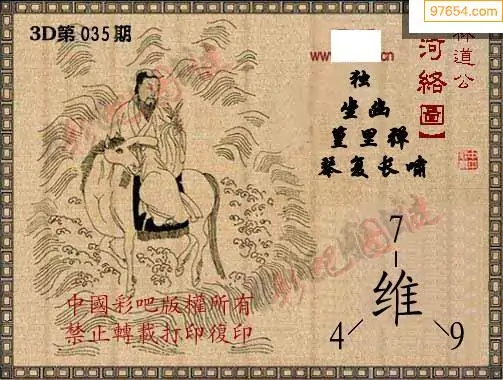 97654.com
3D第035期
www.
cn
林道公
河絡圖】
独
坐幽
篁里弹
琴复长啸
彩吧图谜
彩吧图谜
7
维
4
9
中國彩吧版權所有
禁止轉載打印復印